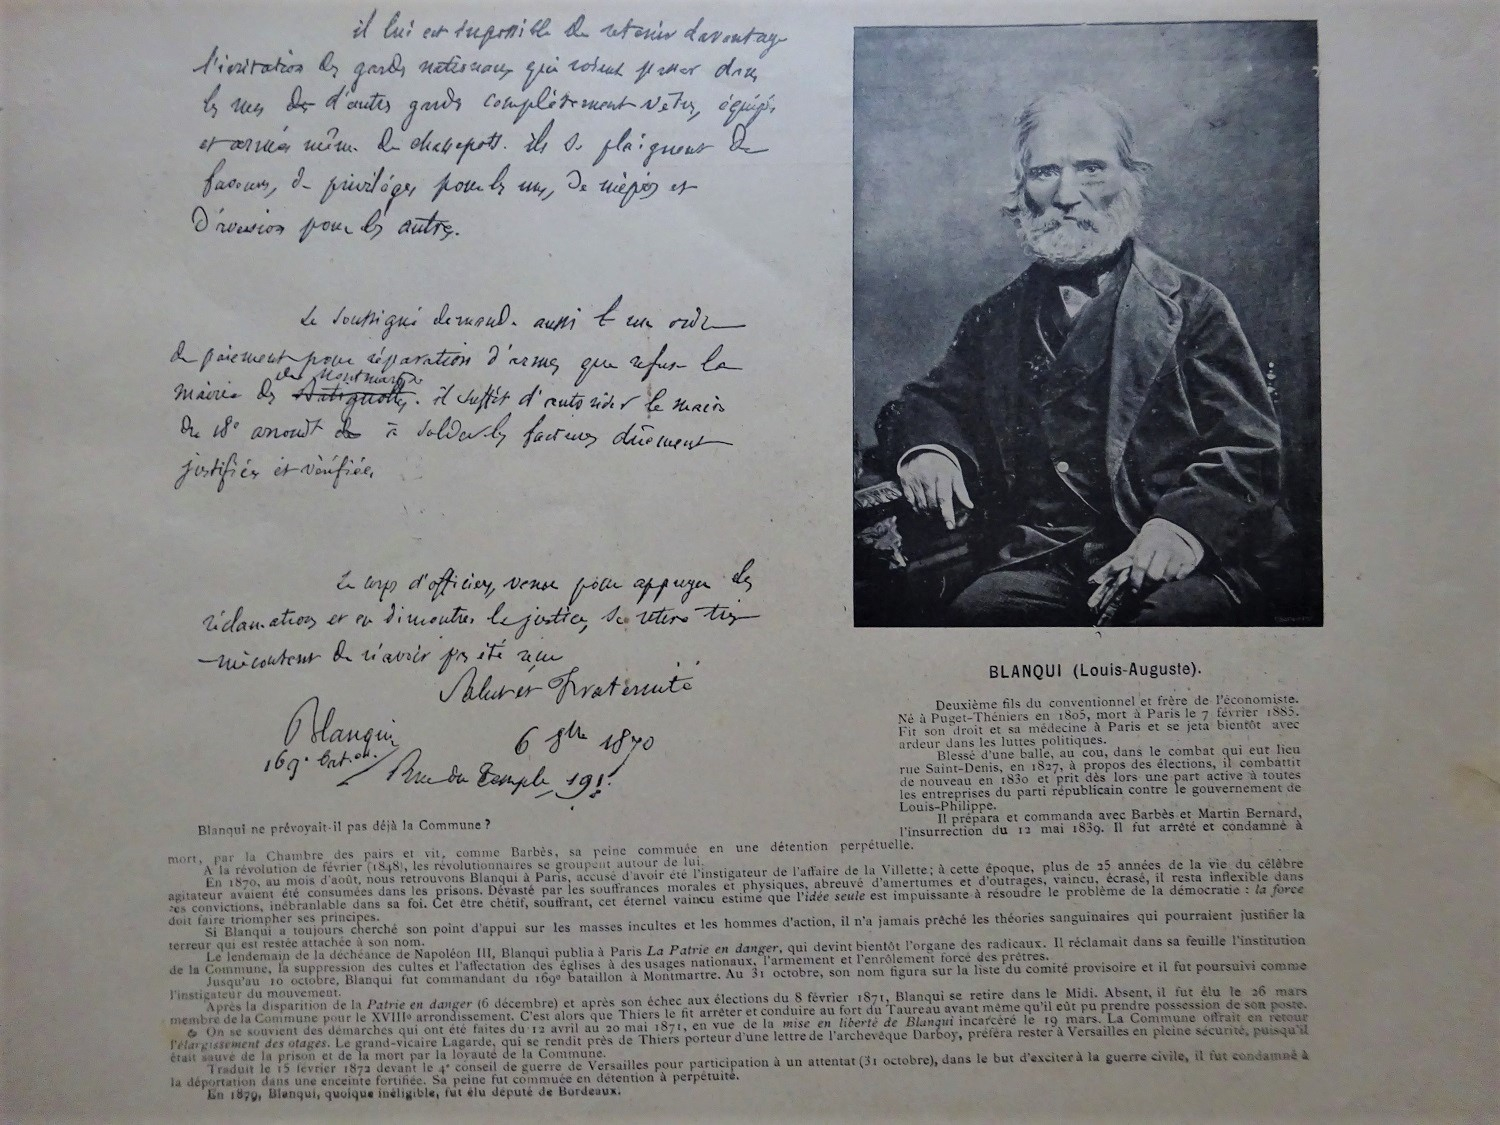 il lui est impossible de retenir davantage
l'irritation des gardes nationaux qui voient passer dans
les rues des d'autres gardes complètement vêtus, équipés
et armés même de chassepots. ils se plaignent de
faveurs, de privilèges pour les uns, de mépris et
D'aversion pour les autres.
Le soussigné demande aussi un ordre
de paiement pour réparation d'armes que refuse la
de Montmartre
mairie des Batignolles. il suffit d'autoriser le maire
du 18e arrondt à solder les factures dûement
justifiées et vérifiées
Le corps d'officiers, venu pour appuyer les
réclamations et en démontrer la justice, se retire très
mécontent de n'avoir pas été reçu
Salut et Fraternité
Blanqui
6 8bre 1870
169e bat.on
Rue du Temple 191
Blanqui ne prévoyait-il pas déjà la Commune ?
BLANQUI (Louis-Auguste).
Deuxième fils du conventionnel et frère de l'économiste.
Né à Puget-Théniers en 1805, mort à Paris le 7 février 1885.
Fit son droit et sa médecine à Paris et se jeta bientôt avec
ardeur dans les luttes politiques.
Blessé d'une balle, au cou, dans le combat qui eut lieu
rue Saint-Denis, en 1827, à propos des élections, il combattit
de nouveau en 1830 et prit dès lors une part active à toutes
les entreprises du parti républicain contre le gouvernement de
Louis-Philippe.
Il prépara et commanda avec Barbès et Martin Bernard,
l'insurrection du 12 mai 1839. Il fut arrêté et condamné à
mort, par la Chambre des pairs et vit, comme Barbès, sa peine commuée en une détention perpétuelle.
A la révolution de février (1848), les révolutionnaires se groupent autour de lui.
En 1870, au mois d'août, nous retrouvons Blanqui à Paris, accusé d'avoir été l'instigateur de l'affaire de la Villette ; à cette époque, plus de 25 années de la vie du célèbre
agitateur avaient été consumées dans les prisons. Dévasté par les souffrances morales et physiques, abreuvé d'amertumes et d'outrages, vaincu, écrasé, il resta inflexible dans
ses convictions, inébranlable dans sa foi. Cet être chétif, souffrant, cet éternel vaincu estime que l'idée seule est impuissante à résoudre le problème de la démocratie : la force
doit faire triompher ses principes.
Si Blanqui a toujours cherché son point d'appui sur les masses incultes et les hommes d'action, il n'a jamais prêché les théories sanguinaires qui pourraient justifier la
terreur qui est restée attachée à son nom.
Le lendemain de la déchéance de Napoléon III, Blanqui publia à Paris La Patrie en danger, qui devint bientôt l'organe des radicaux. Il réclamait dans sa feuille l'institution
de la Commune, la suppression des cultes et l'affectation des églises à des usages nationaux, l'armement et l'enrôlement forcé des prêtres.
Jusqu'au 10 octobre, Blanqui fut commandant du 169e bataillon à Montmartre. Au 31 octobre, son nom figura sur la liste du comité provisoire et il fut poursuivi comme
l'instigateur du mouvement.
Après la disparition de la Patrie en danger (6 décembre) et après son échec aux élections du 8 février 1871, Blanqui se retire dans le Midi. Absent, il fut élu le 26 mars
membre de la Commune pour le XVIIIe arrondissement. C'est alors que Thiers le fit arrêter et conduire au fort du Taureau avant même qu'il eût pu prendre possession de son poste.
On se souvient des démarches qui ont été faites du 12 avril au 20 mai 1871, en vue de la mise en liberté de Blanqui incarcéré le 19 mars. La Commune offrait en retour
l'élargissement des otages. Le grand-vicaire Lagarde, qui se rendit près de Thiers porteur d'une lettre de l'archevêque Darboy, préféra rester à Versailles en pleine sécurité, puisqu'il
était sauvé de la prison et de la mort par la loyauté de la Commune.
Traduit le 15 février 1872 devant le 4e conseil de guerre de Versailles pour participation à un attentat (31 octobre), dans le but d'exciter à la guerre civile, il fut condamné à
la déportation dans une enceinte fortifiée. Sa peine fut commuée en détention à perpétuité.
En 1879, Blanqui, quoique inéligible, fut élu député de Bordeaux.